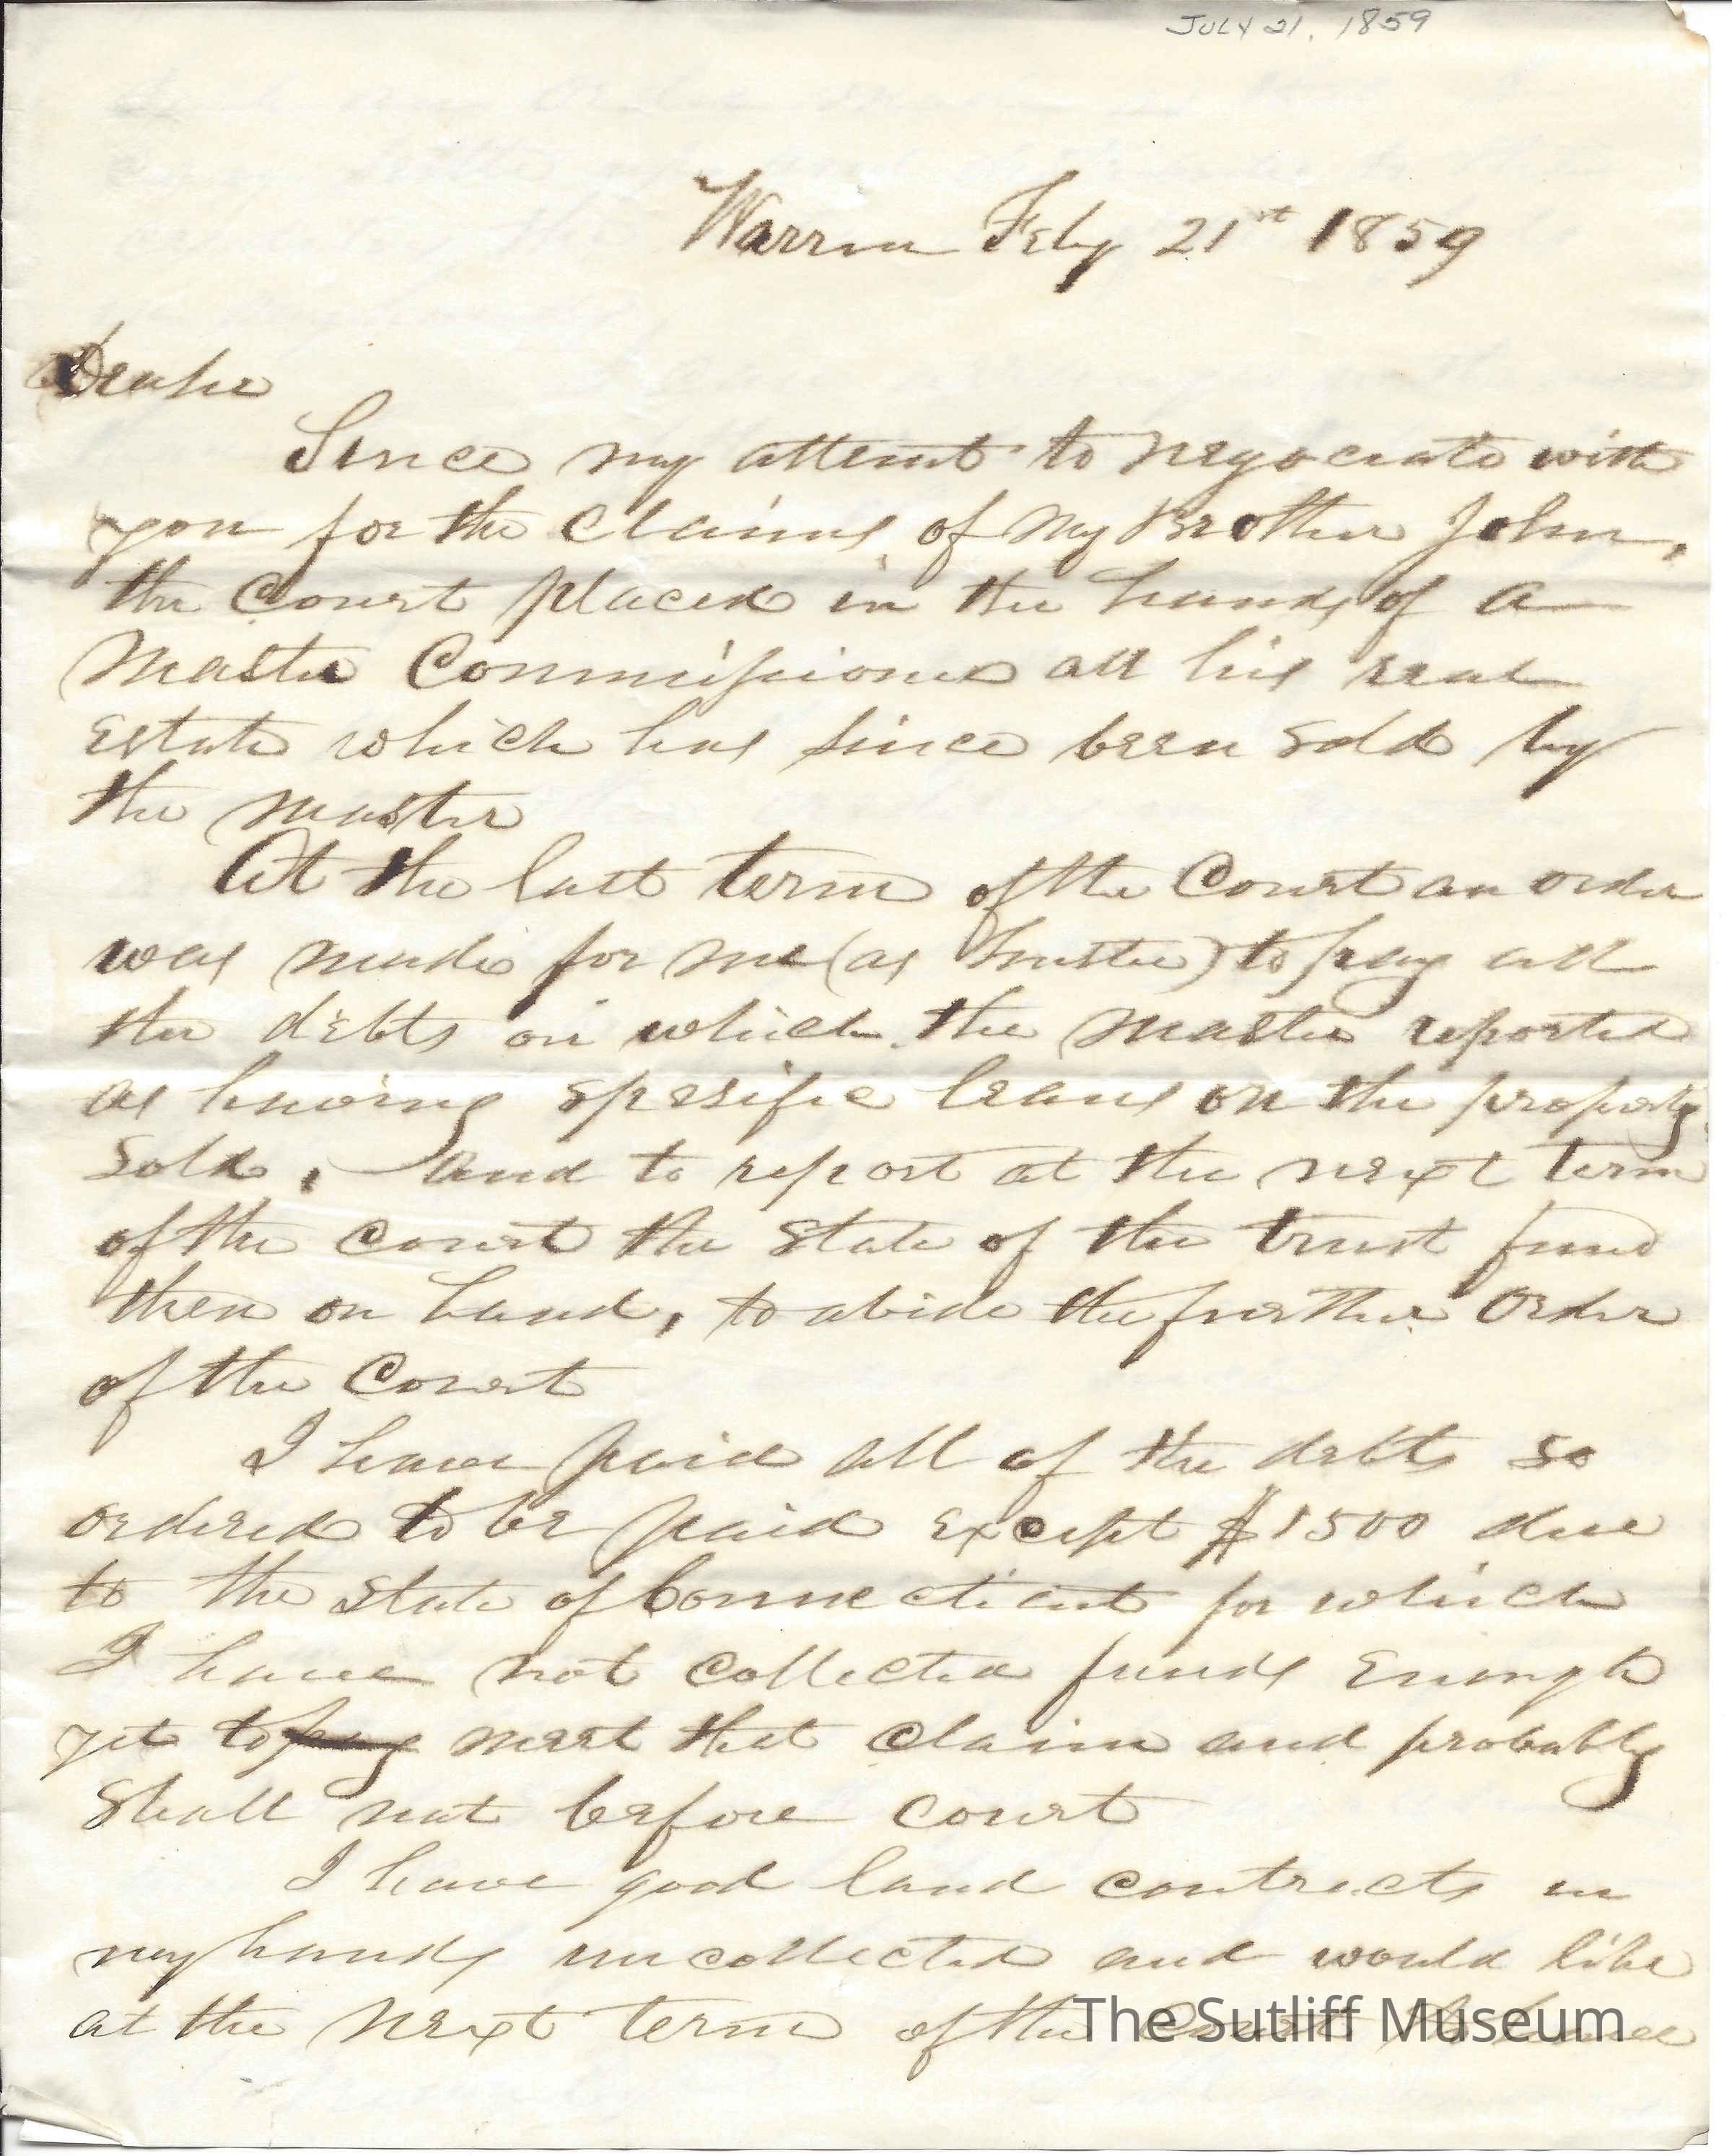 JULY 21, 1859
Warren Feby 21st 1859
Since my attemt to negociate with
you for the claims of my Brother John,
the Court placed in the hands of a
Master Commissioner all his real
Estate which has since been sold by
the Master
At the last term of the Court an order
was made for me (as Trustee) to pay all
the debts on which the Master reported
as having spesific leans on the property
sold, and to report at the next term
of the Court the State of the trust fund
then on hand, to abide the further Order
of the Court
I have paid all of the debts so
ordered to be paid except $1500 due
to the State of Connecticut for which
I have not collected funds Enough
yet to pay meet that claim and probably
Shall not before court
I have good land contracts in
my hands uncollected and would like
at the next term of the Court to have
The Sutliff Museum